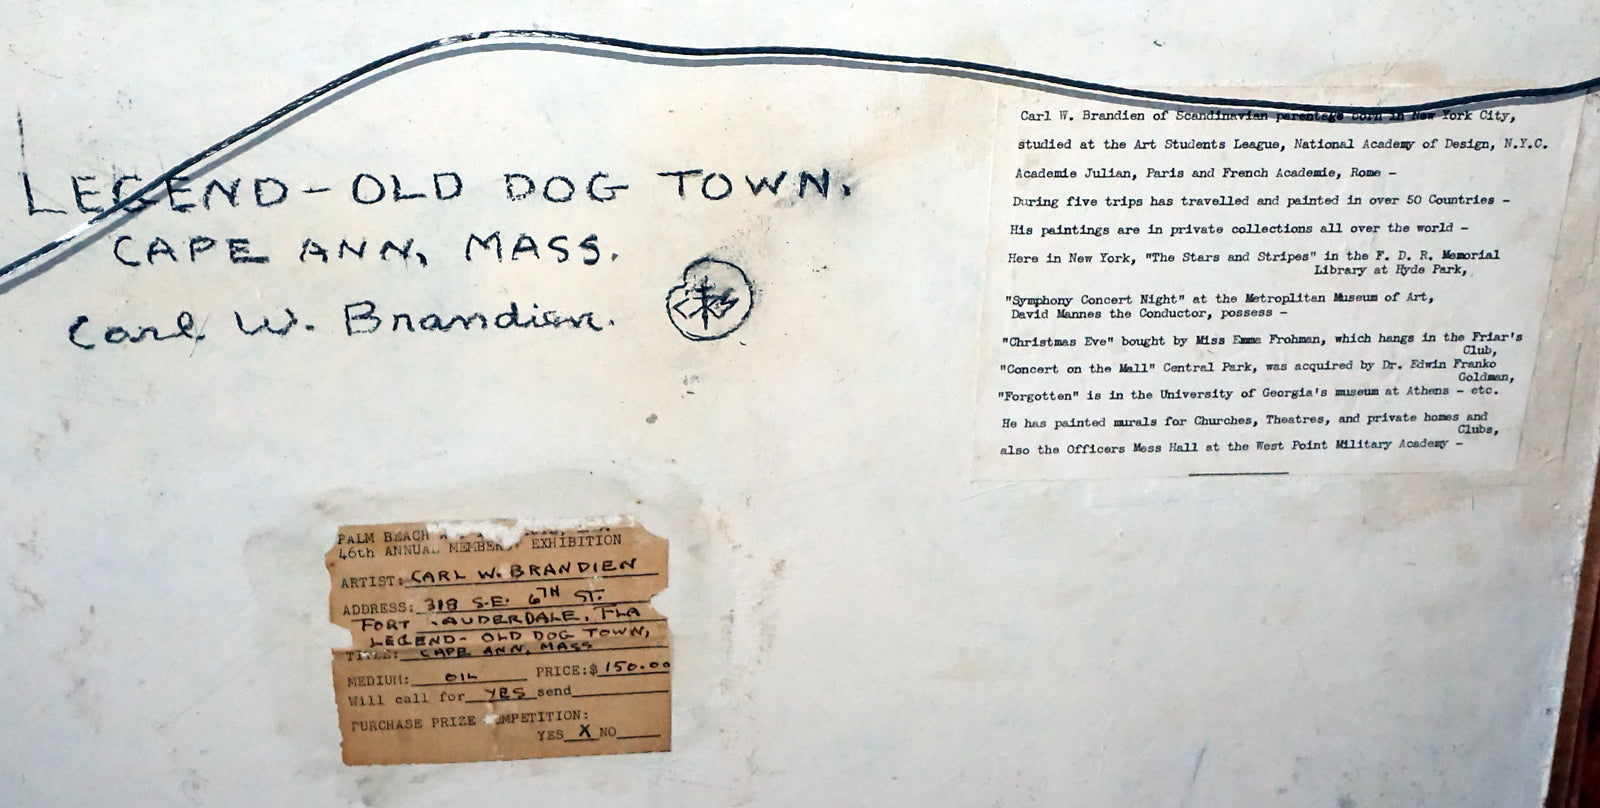 LEGEND - OLD DOG TOWN.
CAPE ANN, MASS.
Carl W. Brandien.
Carl W. Brandien of Scandinavian parentage born in New York City,
studied at the Art Students League, National Academy of Design, N.Y.C.
Academie Julian, Paris and French Academie, Rome -
During five trips has travelled and painted in over 50 Countries -
His paintings are in private collections all over the world -
Here in New York, "The Stars and Stripes" in the F. D. R. Memorial
Library at Hyde Park,
"Symphony Concert Night" at the Metroplitan Museum of Art,
David Mannes the Conductor, possess -
"Christmas Eve" bought by Miss Emma Frohman, which hangs in the Friar's
Club,
"Concert on the Mall" Central Park, was acquired by Dr. Edwin Franko
Goldman,
"Forgotten" is in the University of Georgia's museum at Athens - etc.
He has painted murals for Churches, Theatres, and private homes and
Clubs,
also the Officers Mess Hall at the West Point Military Academy -
PALM BEACH
46th ANNUAL MEMBERS EXHIBITION
ARTIST: CARL W. BRANDIEN
ADDRESS: 318 S.E. 6TH ST.
FORT LAUDERDALE, FLA
LEGEND - OLD DOG TOWN,
TITLE: CAPE ANN, MASS
MEDIUM: OIL PRICE: $150.00
Will call for YES send
PURCHASE PRIZE COMPETITION:
YES X NO